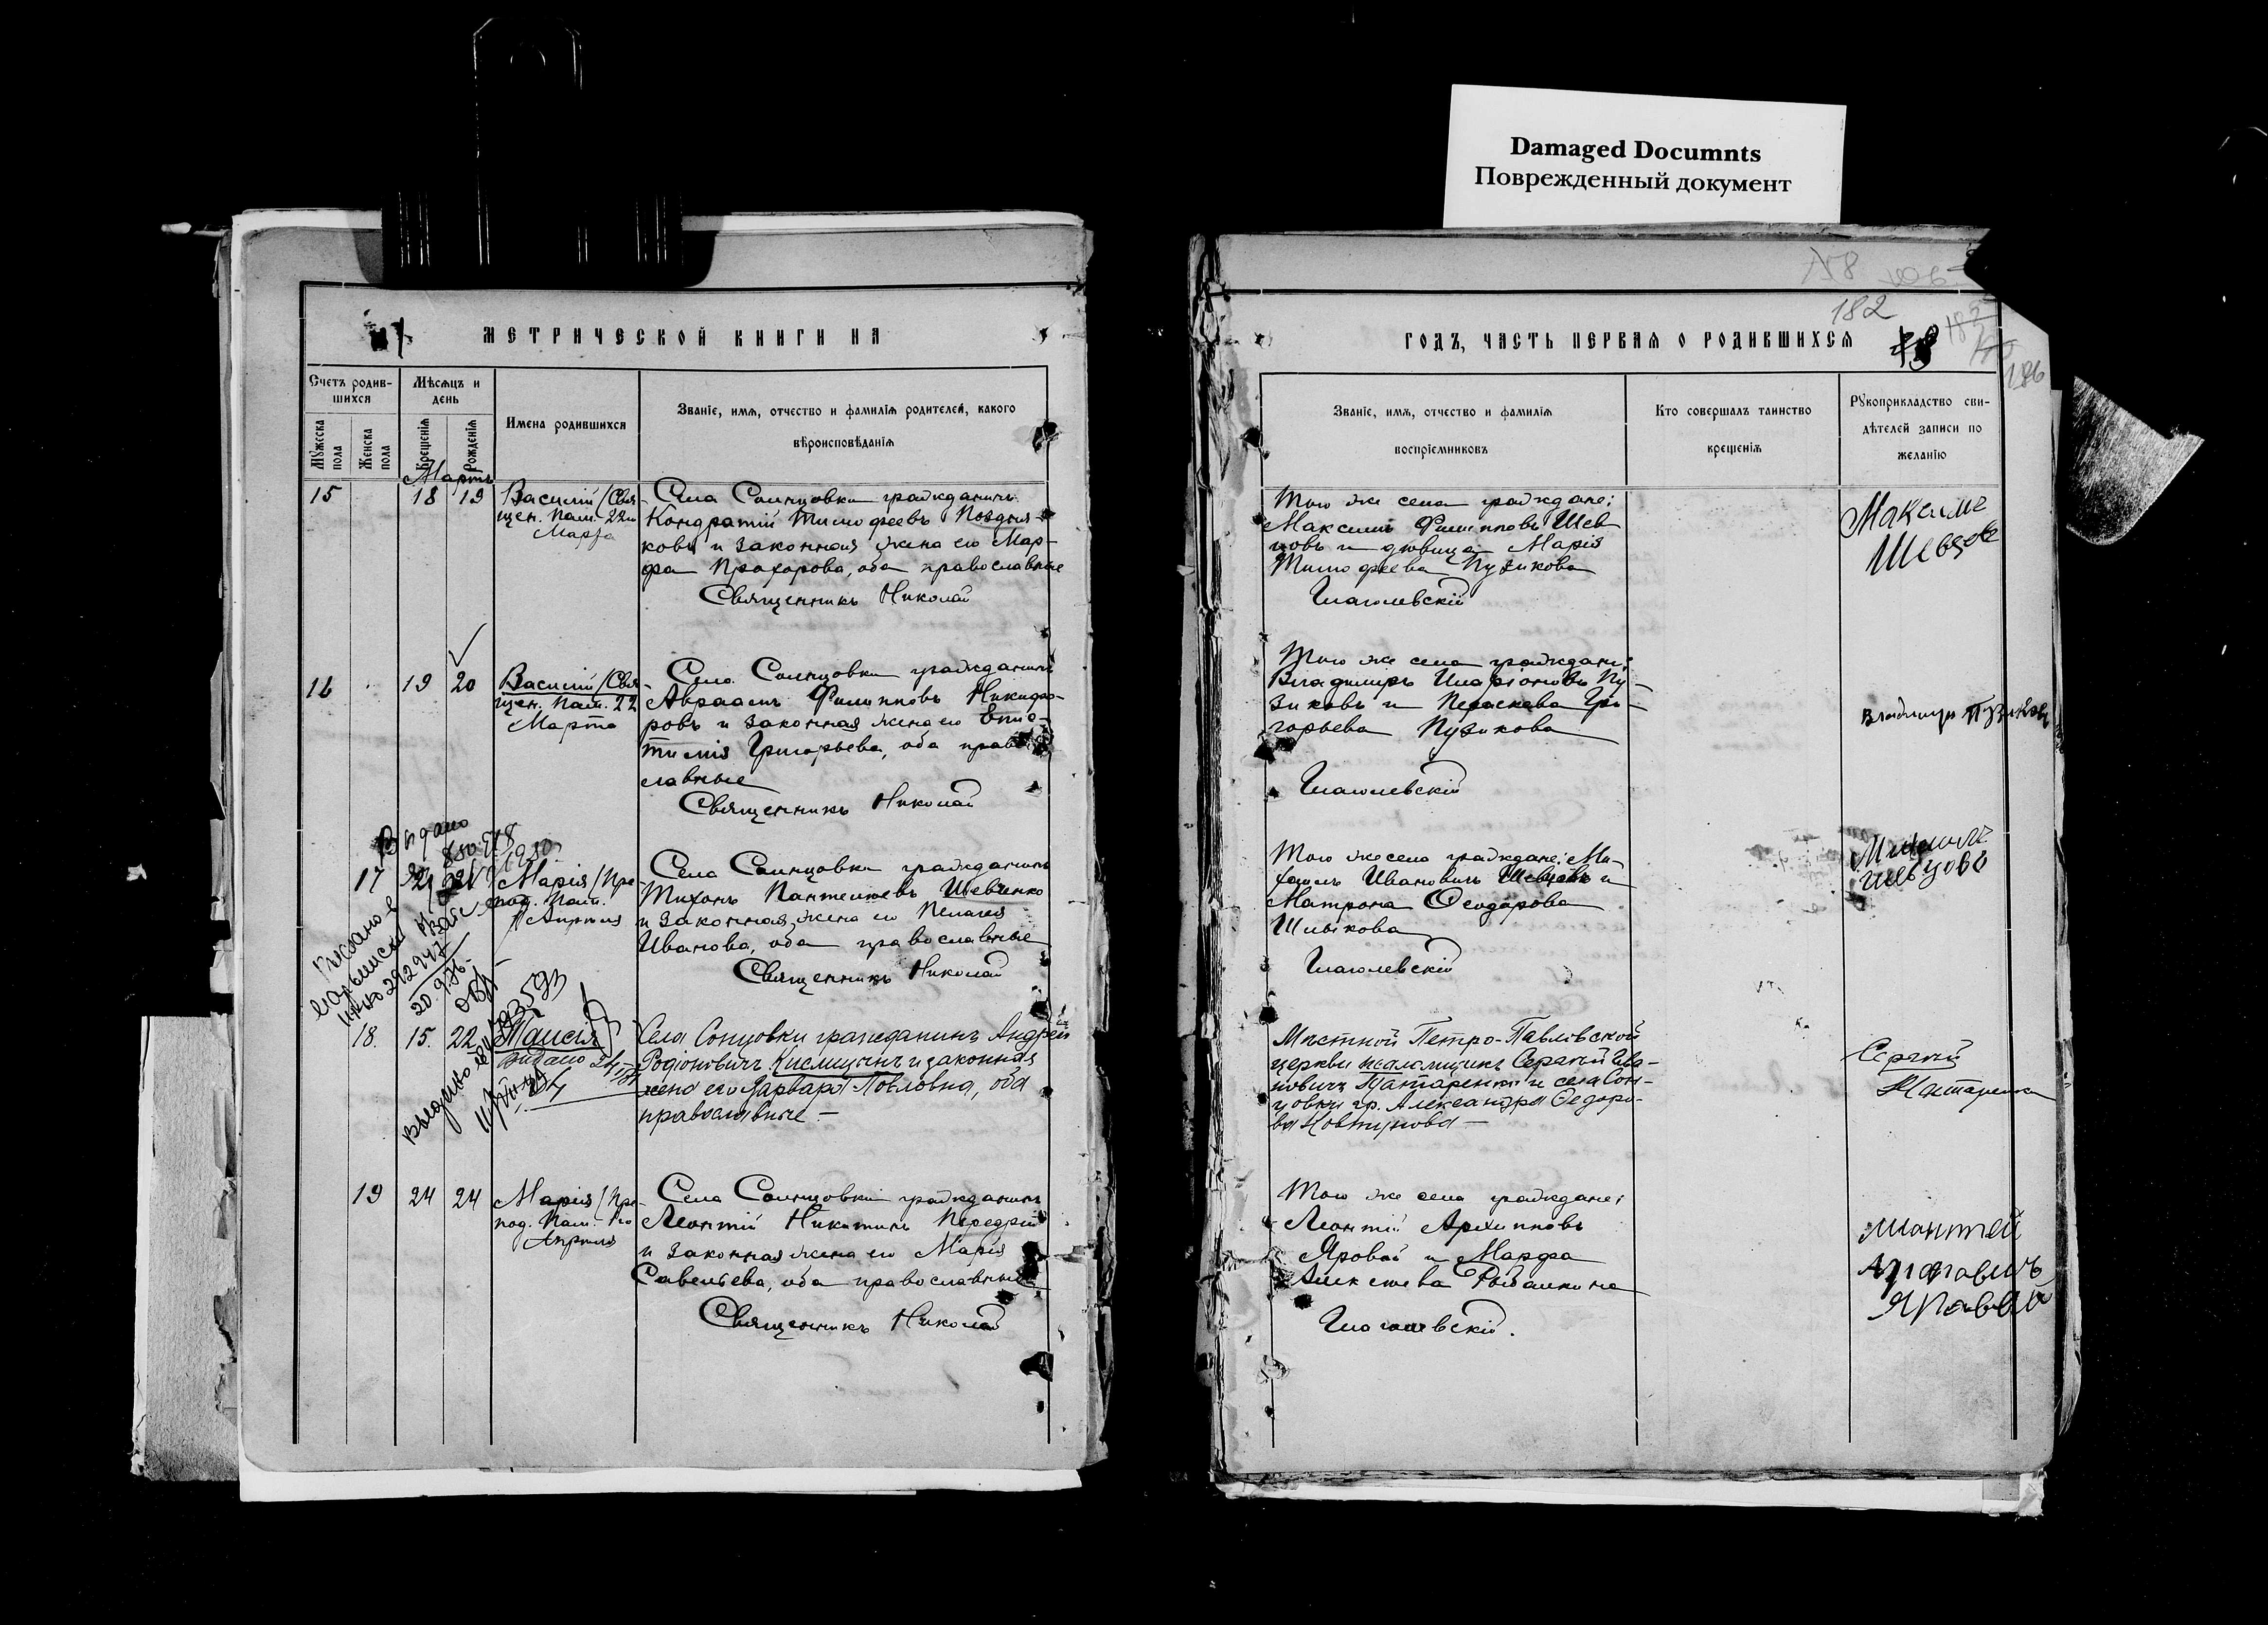 Damaged Documnts
Поврежденный документ
МЕТРИЧЕСКОЙ КНИГИ НА
Счетъ родив-
шихся
Мѣсяцъ и
день
Мужеска
пола
Женска
пола
Крещенія
Рожденія
Имена родившихся
Званіе, имя, отчество и фамилія родителей, какого
вѣроисповѣданія
Мартъ
15 18 19 Василій (Свя-
щен. Пам. 22го
Марта
Села Солнцовки гражданинъ
Кондратій Тимофеевъ Поздня-
ковъ и законная жена его Мар-
фа Прохорова, оба православные
Священникъ Николай
16 19 20 Василій (Свя-
щен. Пам. 22
Марта
Села Солнцовки гражданинъ
Авраамъ Филипповъ Никифо-
ровъ и законная жена его
Григорьева, оба право-
славные
Священникъ Николай
Выдано
850578
17 21 Марія (Пре-
под. Пам.
1 Апрѣля
Села Солнцовки гражданинъ
Тихонъ Пантелеевъ Шевченко
и законная жена его Пелагея
Иванова, оба православные
Священникъ Николай
292947
20.9.76
18. 15. 22 Таисія
Видано 24
Села Сонцовки гражданинъ Андрей
Родіоновичъ Кислицинъ и законная
жена его Варвара Павловна, оба
православные —
19 24 24 Марія (Пре-
под. Пам. 1го
Апрѣля
Села Солнцовки гражданинъ
Леонтій Никитинъ Передрій
и законная жена его Марія
Савельева, оба православные
Священникъ Николай
182
186
ГОДЪ, ЧАСТЬ ПЕРВАЯ О РОДИВШИХСЯ
Званіе, имя, отчество и фамилія
воспріемниковъ
Кто совершалъ таинство
крещенія
Рукоприкладство сви-
дѣтелей записи по
желанію
Того же села граждане:
Максимъ Филипповъ Шев-
цовъ и дѣвица Марія
Тимофеева Пузикова
Глаголевскій
Максимъ
Шевцовъ
Того же села граждане:
Владимиръ Иларіоновъ Пу-
зиковъ и Параскева Гри-
горьева Пузикова
Глаголевскій
Владимиръ Пузиковъ
Того же села граждане: Ми-
хаилъ Ивановичъ Шевцовъ и
Матрона Ѳеодорова
Шлыкова
Глаголевскій
Михаилъ
Шевцовъ
Мѣстной Петро-Павловской
церкви псаломщикъ Сергѣй Ива-
новичъ Татаренко и села Сон-
цовки гр. Александра Ѳедоро-
ва Ковтунова —
Сергѣй
Татаренко
Того же села граждане:
Леонтій Архиповъ
Яровой и Марфа
Алексѣева Рыбалкина
Глаголевскій.
Леонтей
Архиповичъ
Яровой